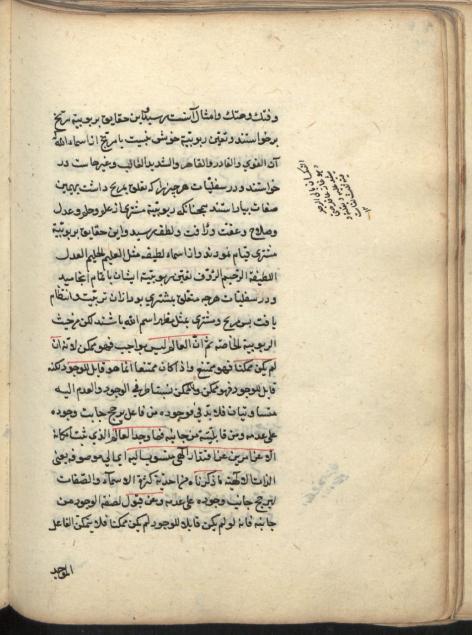 وفتك وهتك وامثال آنست رسید واین حقایق بربوبیة مریخ
برخواستند وتعین ربوبیة خویش بنسبت با مریخ از اسماء الله
آن القوی والقادر والقاهر والشدید الغالب وغیرها ست در
خواستند ودر سفلیات هرچیز را که تعلق بمریخ داشت بهمین
صفات بیاراستند همچنانکه ربوبیة مشتری از علم وحلم وعدل
وصلاح وعفت ورأفت ولطف رسید واین حقایق بربوبیة
مشتری قیام نمودند واز اسماء لطیفه مثل العلیم الحلیم العدل
اللطیف الرحیم الرؤف تعین ربوبیة ایشان باتمام انجامید
ودر سفلیات هرچه متعلق بمشتری بود ازان تربیت وانتظام
یافت پس مریخ ومشتری مثل مظهر اسم الله باشند لکن من حیث
الربوبیة الخاصة ثم ان العالم لیس بواجب فهو ممکن لانه ان
لم یکن ممکنا فهو ممتنع واذا کان ممتنعا لما هو قابل للوجود لکنه
قابل للوجود فهو ممکن والممکن نسبتا طرفی الوجود والعدم الیه
متساویتان فلا بد فی وجوده من فاعل یرجح جانب وجوده
علی عدمه ومن قابلیة من جانبه فما وجد العالم الذی ثبت امکانه
الا عن امرین عن اقتدار الهی منسوب الیه ای الی موصوف یعنی
الذات الالهیة ما ذکرناه من احدیة کثرة الاسماء والصفات
لترجح جانب وجوده علی عدمه وعن قبول لصفة الوجود من
جانبه فانه لو لم یکن قابلا للوجود لم یکن ممکنا فلا یتمکن الفاعل
الموجد